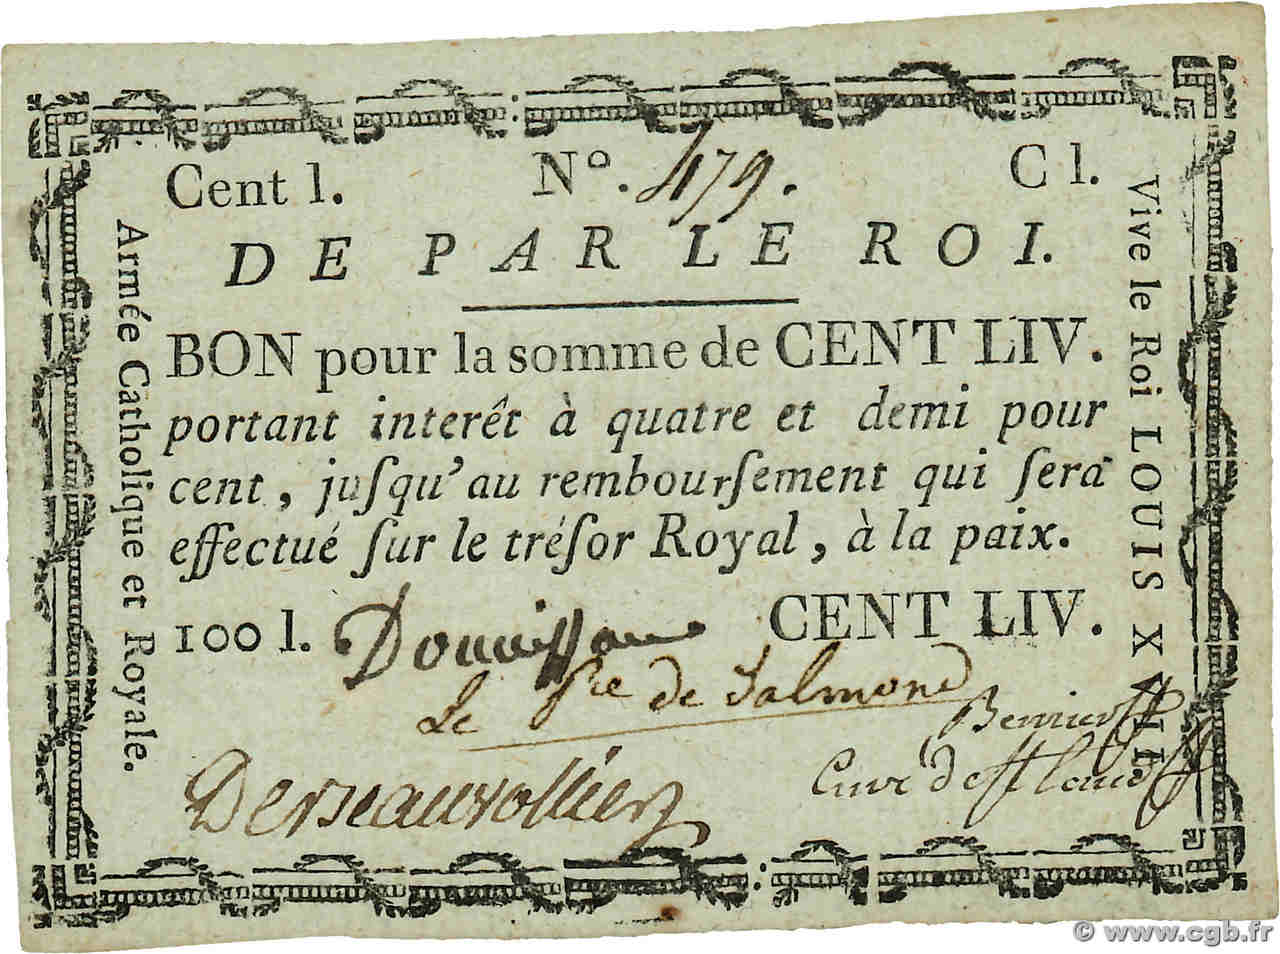 Cent l. Nº. 479. C l.
DE PAR LE ROI.
BON pour la somme de CENT LIV.
portant interêt à quatre et demi pour
cent, juſqu'au rembourſement qui ſera
effectué ſur le tréſor Royal, à la paix.
100 l. Donnissan CENT LIV.
Le Pce de Talmond
Bernier
Curé de St Laud
Desessarts
Armée Catholique et Royale.
Vive le Roi LOUIS XVII
© www.cgb.fr